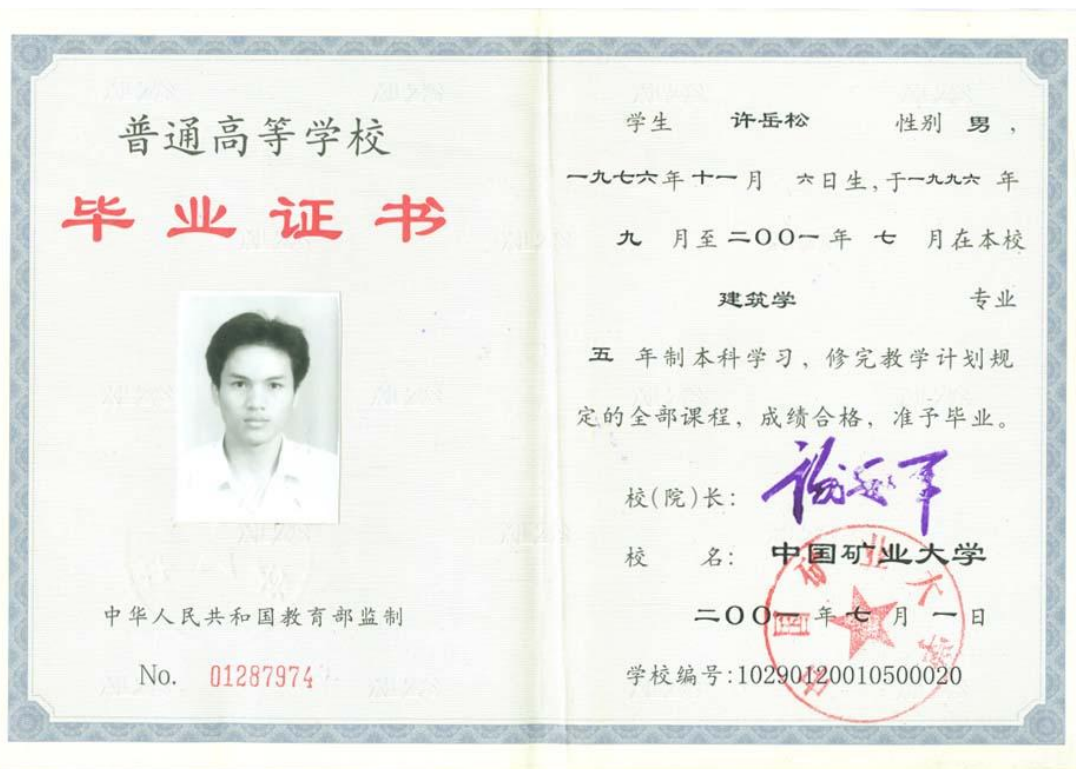 普通高等学校
毕业证书
中华人民共和国教育部监制
No. 01287974
学生 许岳松 性别 男,
一九七六年十一月 六日生,于一九九六 年
九 月至二〇〇一年 七 月在本校
建筑学 专业
五 年制本科学习,修完教学计划规
定的全部课程,成绩合格,准予毕业。
校(院)长:
校 名: 中国矿业大学
二〇〇一年七月一日
学校编号:102901200105000020
中国矿业大学